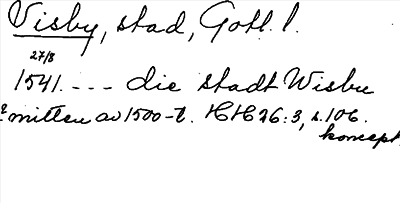 Visby, stad, Gotl. l.
27/8
1541. --- die stadt Wisbu
mitten av 1500-t. HH 26:3, s. 106.
koncept